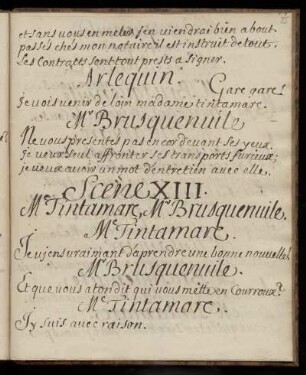 et sans vous en meler j'en viendrai bien about
passés chés mon notaire il est instruit de tout,
Ses Contratts sont tout prests a signer.
Arlequin.
Gare gare!
Je vois venir de loin madame tintamare.
Mr Brusquenuile
Ne vous presentés pas encor devant ses yeux.
Je veux seul affronter ses transports furieux;
je veux avoir un mot d'entretien avec elle.
Scène XIII.
Me Tintamare, Mr Brusquenuile.
Me Tintamare.
Je viens vraiment d'aprendre une bonne nouvelle!
Mr Brusquenuile.
Et que vous a ton dit qui vous mette en Courroux?
Me Tintamare.
J'y suis avec raison.